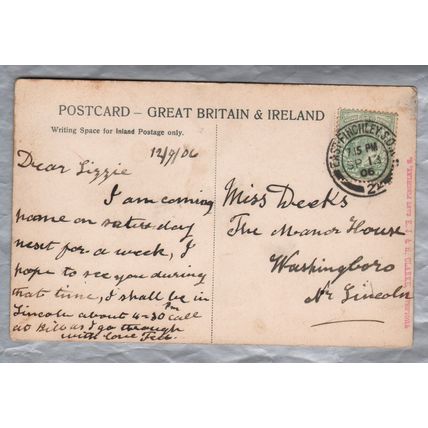 POSTCARD – GREAT BRITAIN & IRELAND
Writing Space for Inland Postage only.
12/9/06
Dear Lizzie
I am coming
home on saterday
next for a week, I
hope to see you during
that time, I shall be in
Lincoln about 4-30 pm call
as I go through
with love
Miss Deeks
The Manor House
Washingboro
Nr Lincoln
EAST FINCHLEY S.O.
15 PM
SP 13
06